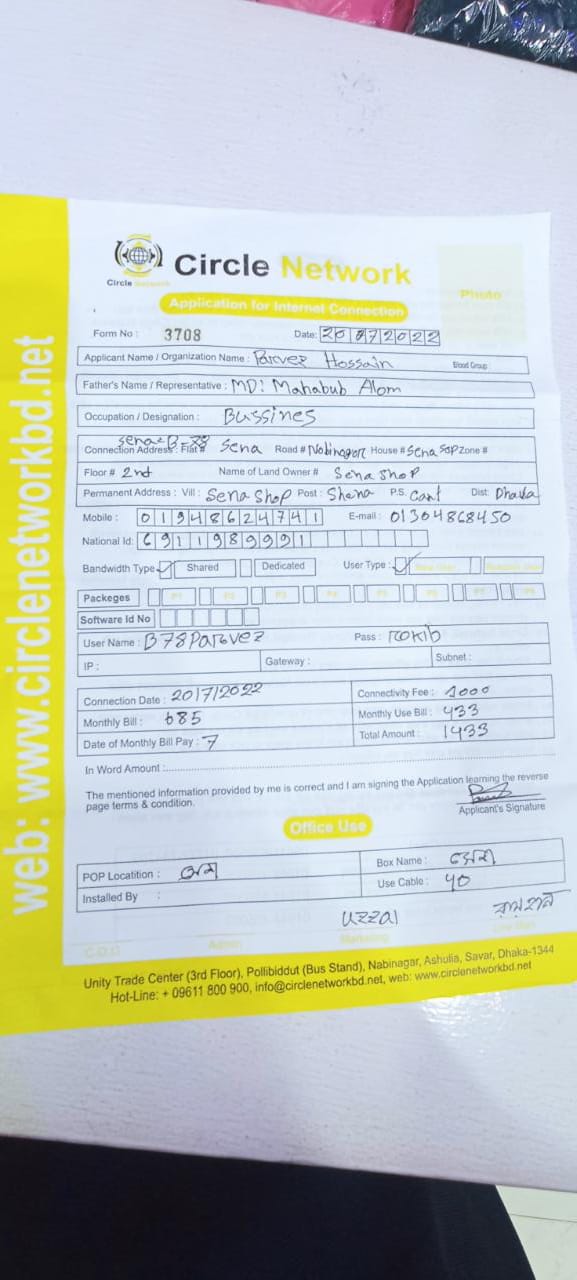 Circle Network
Circle Network
Application for Internet Connection
Photo
Form No : 3708 Date: 20 07 2022
Applicant Name / Organization Name : Parvez Hossain Blood Group
Father's Name / Representative : MD: Mahabub Alom
Occupation / Designation : Bussines
Connection Address: Flat# Sena Road # Nobinagor House # Sena Sop Zone #
Floor # 2nd Name of Land Owner # Sena Shop
Permanent Address : Vill : Sena Shop Post : Shena P.S. Cant Dist: Dhaka
Mobile : 01948624741 E-mail : 01304868450
National Id: 6911989991
Bandwidth Type Shared Dedicated User Type :
Packeges P1 P2 P3 P4 P5 P6 P7 P8
Software Id No
User Name : B78Parvez Pass : rokib
IP : Gateway : Subnet :
Connection Date : 20/7/2022 Connectivity Fee : 1000
Monthly Bill : 685 Monthly Use Bill : 433
Date of Monthly Bill Pay : 7 Total Amount : 1433
In Word Amount :
The mentioned information provided by me is correct and I am signing the Application learning the reverse
page terms & condition.
Applicant's Signature
Office Use
POP Locatition : Box Name :
Installed By : Use Cable : 40
uzzal
C.D.O Admin Marketing
Unity Trade Center (3rd Floor), Pollibiddut (Bus Stand), Nabinagar, Ashulia, Savar, Dhaka-1344
Hot-Line: + 09611 800 900, info@circlenetworkbd.net, web: www.circlenetworkbd.net
web: www.circlenetworkbd.net